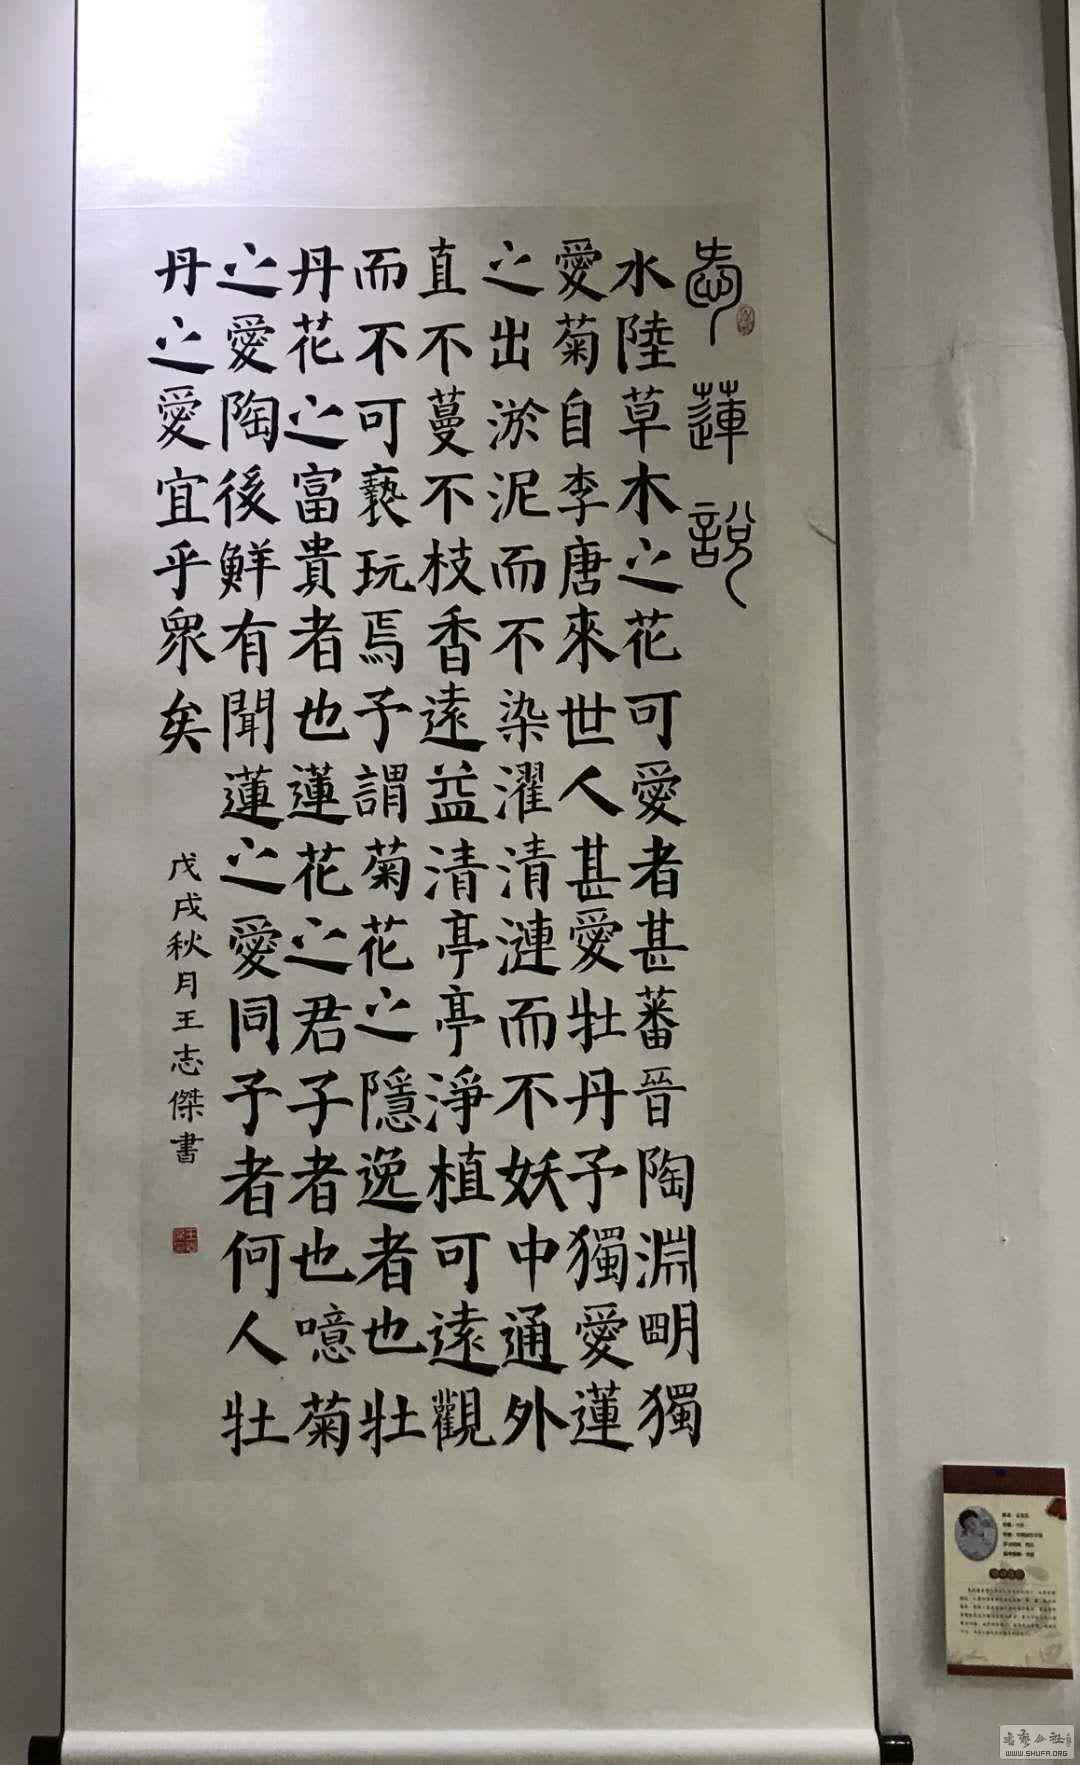 愛蓮說
水陸草木之花可愛者甚蕃晉陶淵明獨
愛菊自李唐來世人甚愛牡丹予獨愛蓮
之出淤泥而不染濯清漣而不妖中通外
直不蔓不枝香遠益清亭亭淨植可遠觀
而不可褻玩焉予謂菊花之隱逸者也牡
丹花之富貴者也蓮花之君子者也噫菊
之愛陶後鮮有聞蓮之愛同予者何人牡
丹之愛宜乎眾矣
戊戌秋月王志傑書
書藝公社
WWW.SHUFA.ORG